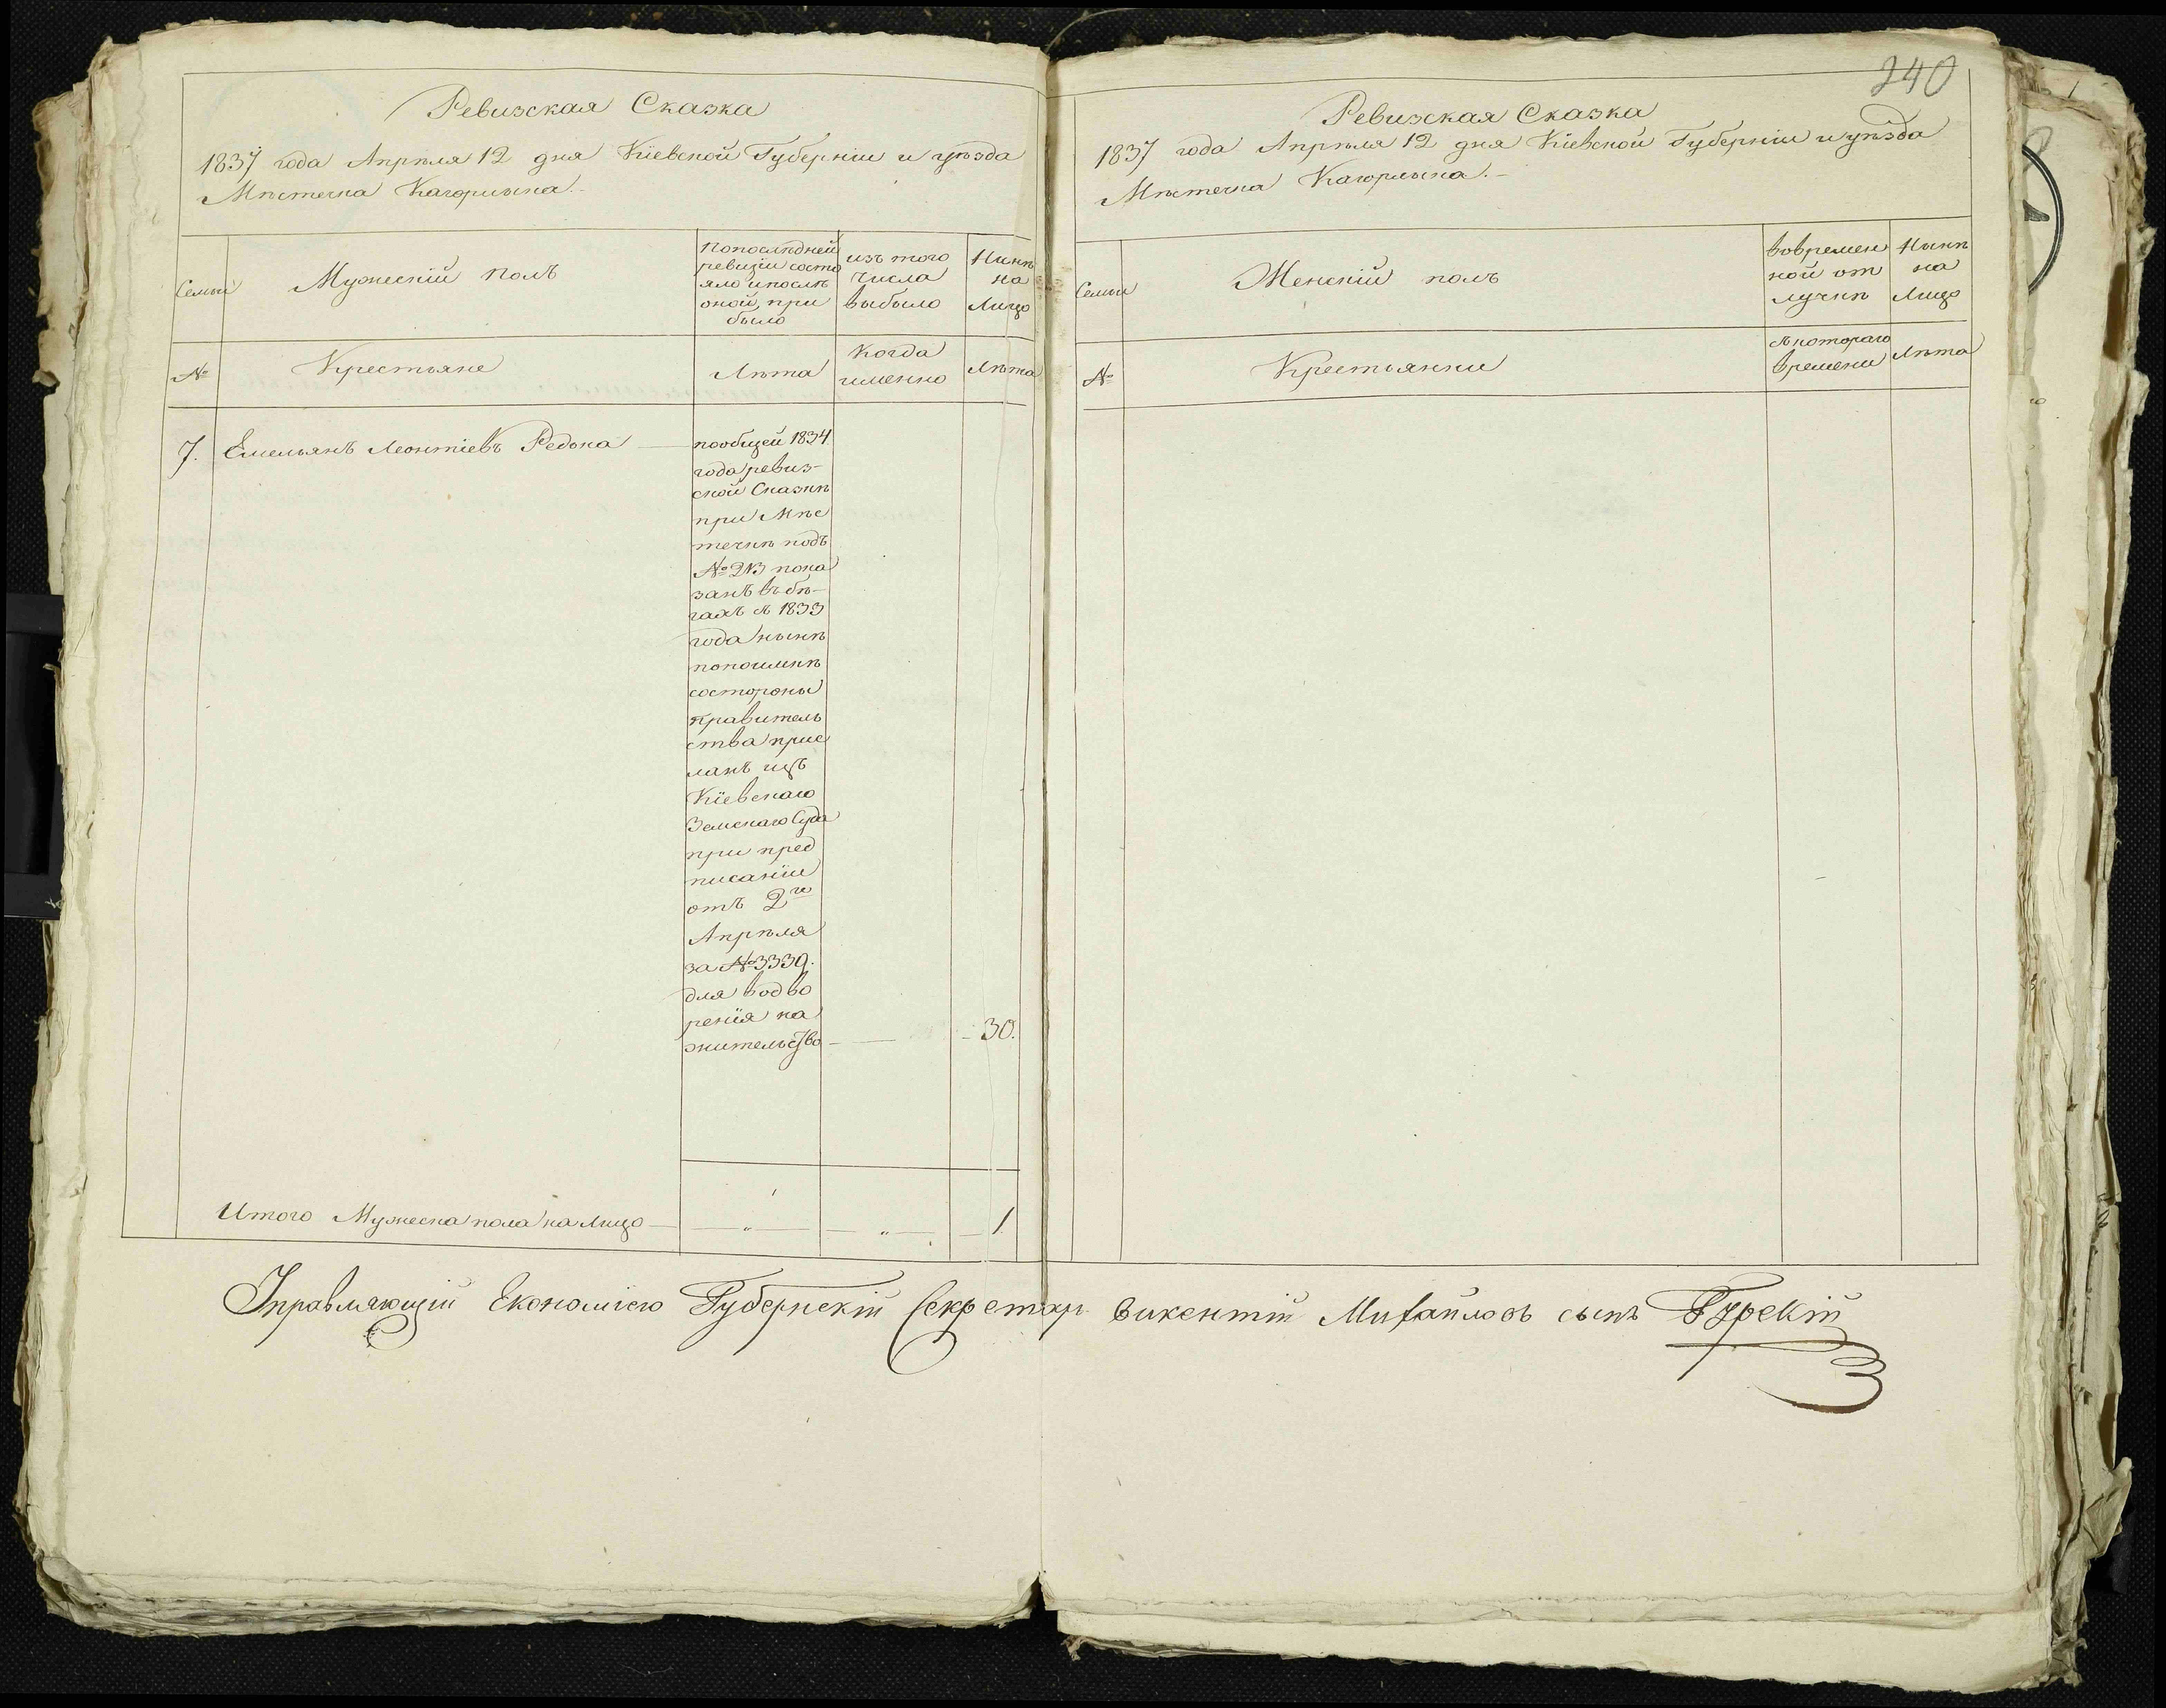 240
Ревизская Сказка
1837 года Апрѣля 12 дня Кіевской Губерніи и уѣзда
Мѣстечка Кагорлыка.
Семьи
Мужескій полъ
По последней
ревизіи состо
яло и послѣ
оной при
было
изъ того
числа
выбыло
Нынѣ
на
Лицо
№
Крестьяне
Лѣта
Когда
именно
Лѣта
7. Емельянъ Леонтіевъ Редька
по общей 1834
года ревиз-
ской Сказкѣ
при Мѣс
течкѣ подъ
№ 213 пока
занъ въ бѣ-
гахъ съ 1833
года нынѣ
по поимкѣ
со стороны
правитель
ства прис
ланъ изъ
Кіевскаго
Земскаго Суда
при пред
писаніи
отъ 2го
Апрѣля
за № 3339.
для водво
ренія на
жительство
30.
Итого Мужеска пола на Лицо — „ — „ — 1.
Ревизская Сказка
1837 года Апрѣля 12 дня Кіевской Губерніи и уѣзда
Мѣстечка Кагорлыка.
Семьи
Женскій полъ
во времен
ной от
лучкѣ
Нынѣ
на
Лицо
№
Крестьянки
съ котораго
времени
Лѣта
Управляющій Економіею Губернскій Секретарь Викентій Михайловъ сынъ Гурскій